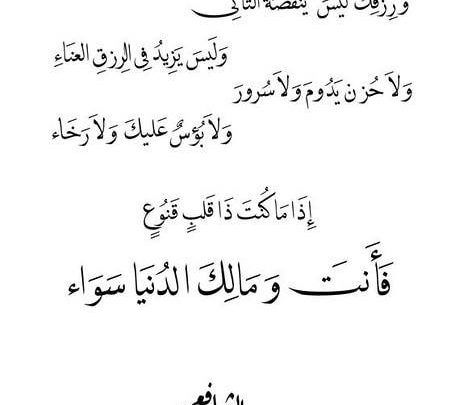 وَرِزقُكَ لَيسَ يُنقِصُهُ التَأَنّي
وَلَيسَ يَزِيدُ فِي الرِزقِ العنَاءِ
وَلاَ حُزن يَدُومَ وَلاَ سُرور
وَلاَ بُؤسٌ عَليكَ وَلاَ رَخَاء
إِذَا مَا كُنتَ ذَا قَلبٍ قَنُوعٍ
فَأَنتَ وَمَالِكَ الدُنيَا سَوَاء
الشافعي